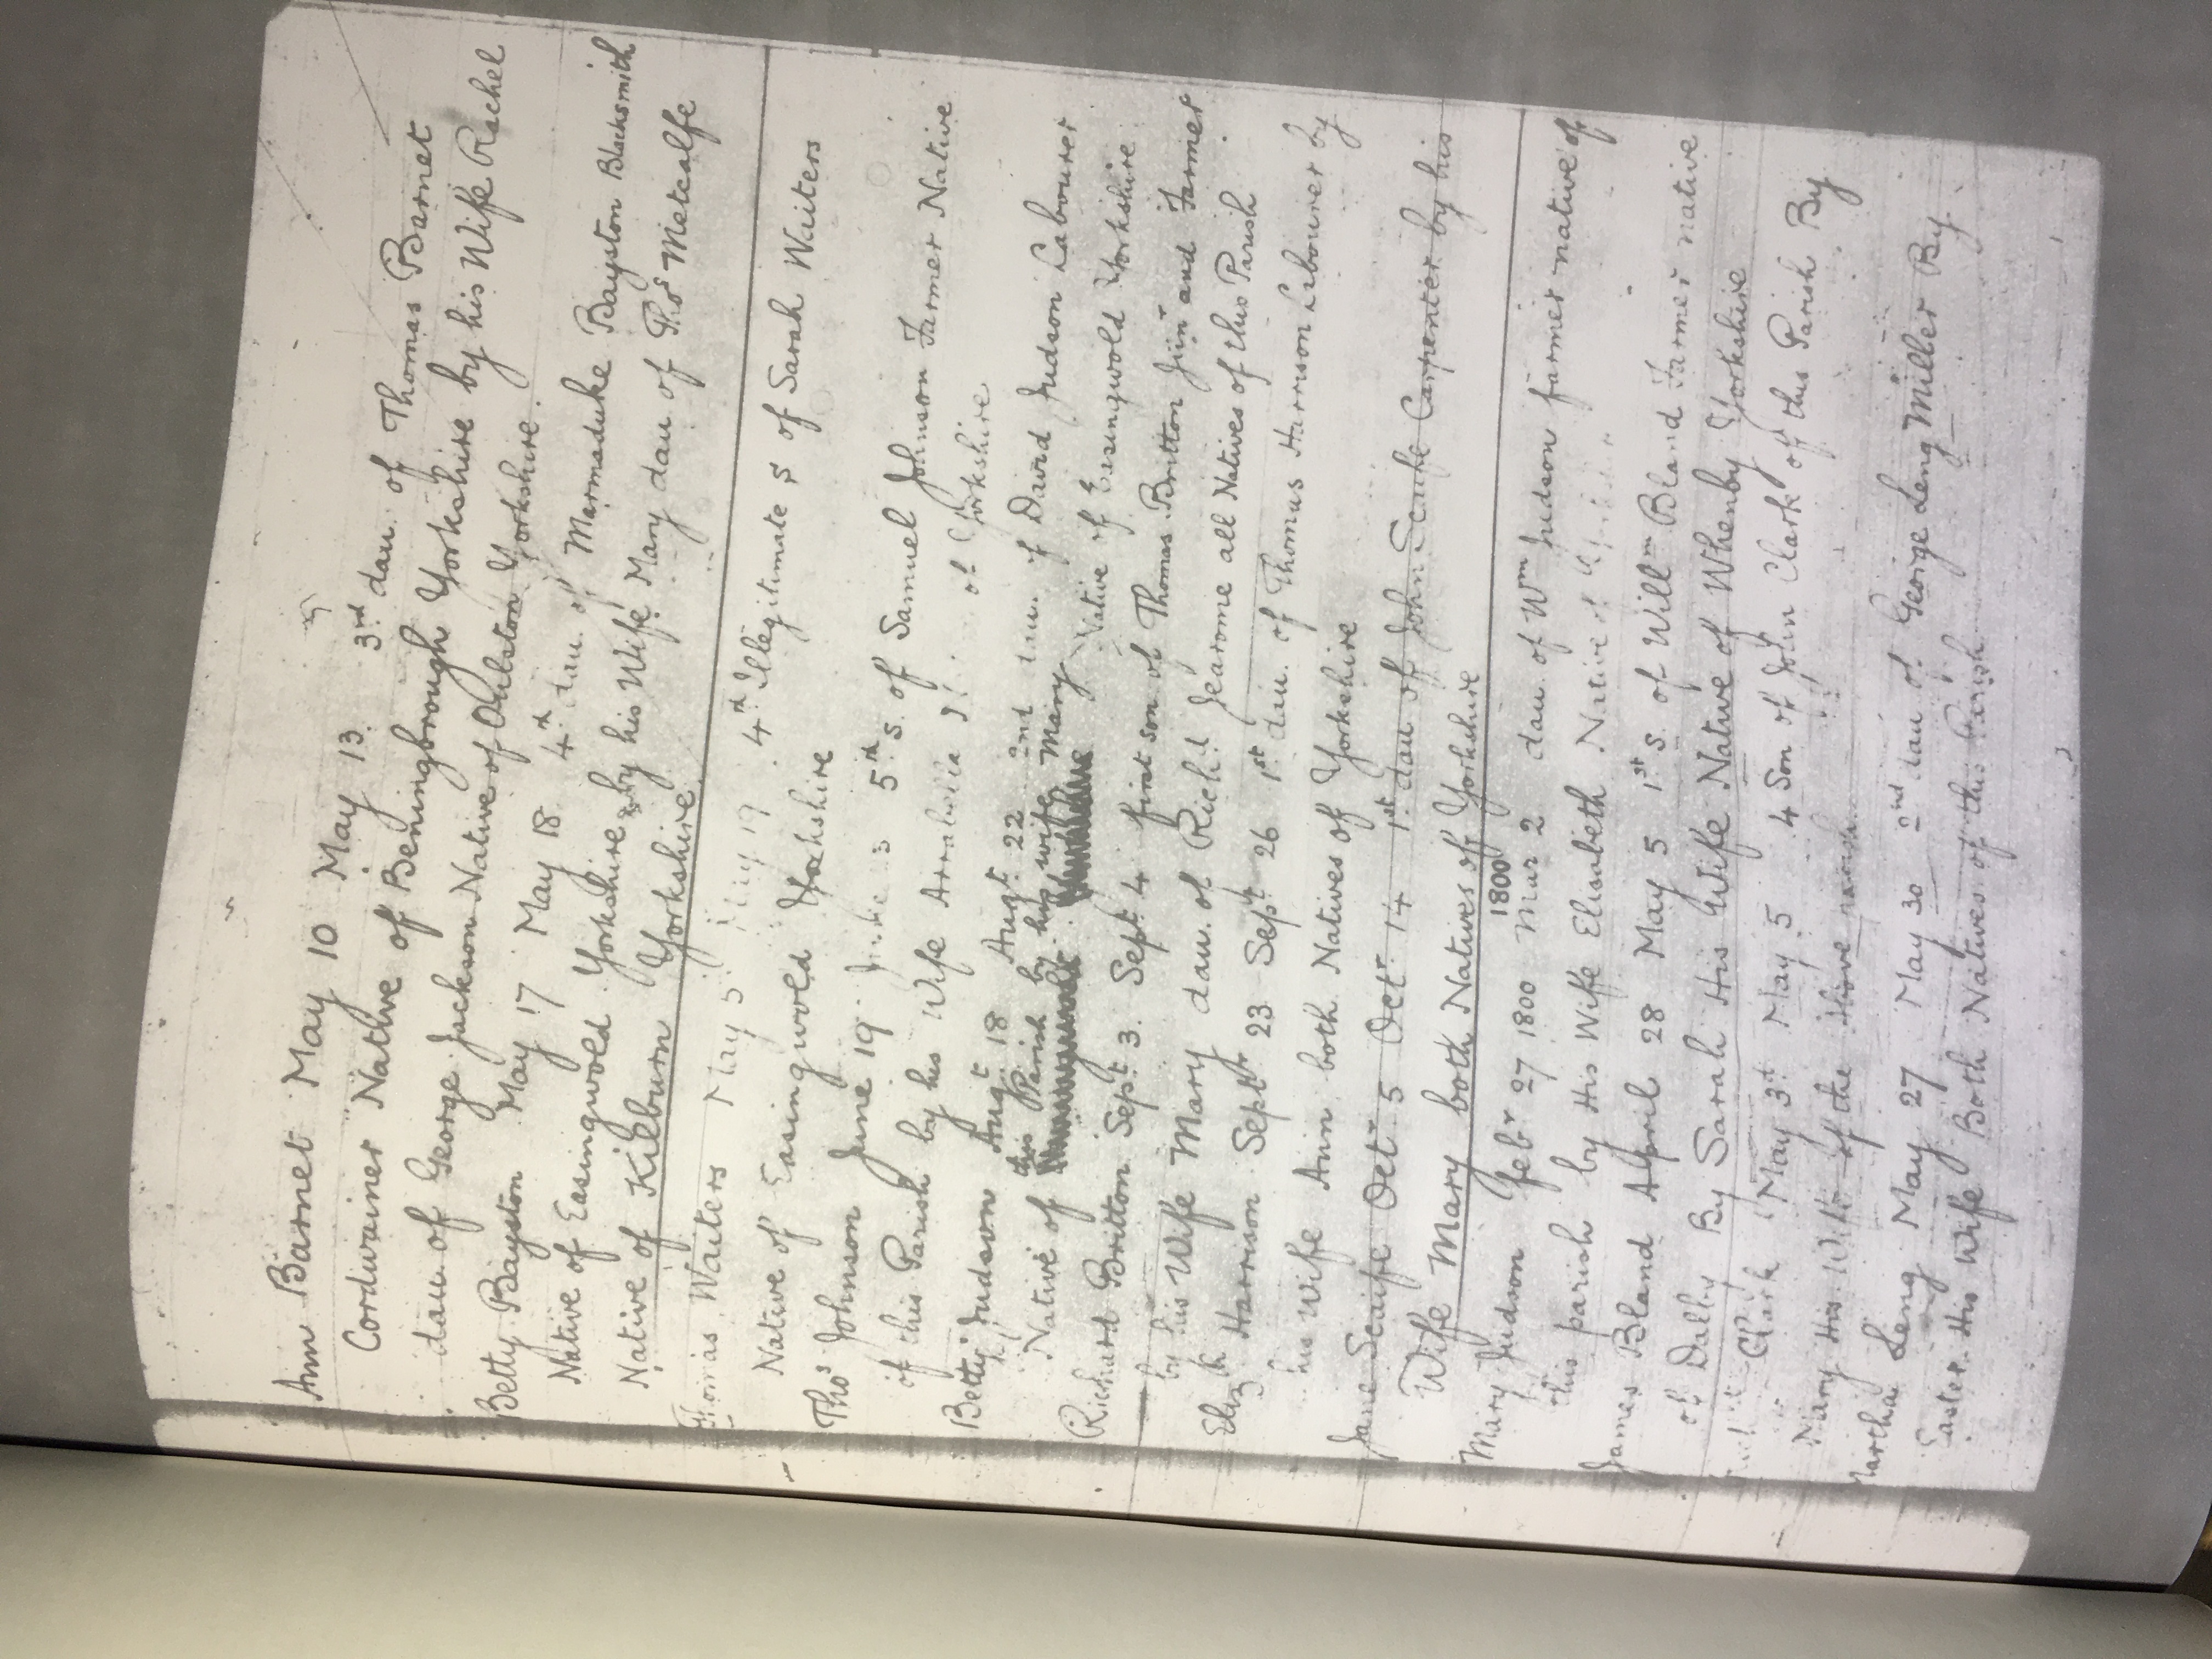 Ann Barnet May 10 May 13 3rd dau. of Thomas Barnet
Cordwainer Native of Beningbrough Yorkshire by his Wife Rachel
dau of George Jackson Native of Oulston Yorkshire.
Betty Bayston May 17 May 18 4th dau. of Marmaduke Bayston Blacksmith
Native of Easingwold Yorkshire by his Wife Mary dau of Thos Metcalfe
Native of Kilburn Yorkshire
Thomas Waiters May 5 19 4th Illegitimate s of Sarah Waiters
Native of Easingwold Yorkshire
Thos Johnson June 19 5th s. of Samuel Johnson Farmer Native
of this Parish by his Wife of Yorkshire
Betty Judson Augt 18 Augt 22 2nd dau. of David Judson Labourer
Native of this Parish by his wife Mary Native of Easingwold Yorkshire
Richard Britton Sept 3. Sept 4 first son of Thomas Britton Junr and Farmer
by his Wife Mary dau. of Richd Jearome all Natives of this Parish
Elizh Harrison Sept 23 Sept 26 1st dau. of Thomas Harrison Labourer by
his Wife Ann both Natives of Yorkshire
Jane Scaife Octr 5 Octr 14 1st dau of John Scaife Carpenter by his
Wife Mary both Natives of Yorkshire
1800
Mary Judson febr 27 1800 Mar 2 dau. of Wm Judson farmer native of
this parish by His Wife Elisabeth Native of
James Bland April 28 May 5 1st s. of Willm Bland Farmer native
of Dalby By Sarah His Wife Native of Whenby Yorkshire
Clark May 3d May 5 4 Son of John Clark of this Parish By
Mary His Wife of the above parish
Martha Leng May 27 May 30 2nd dau of George Leng Miller By
Easter His Wife Both Natives of this Parish